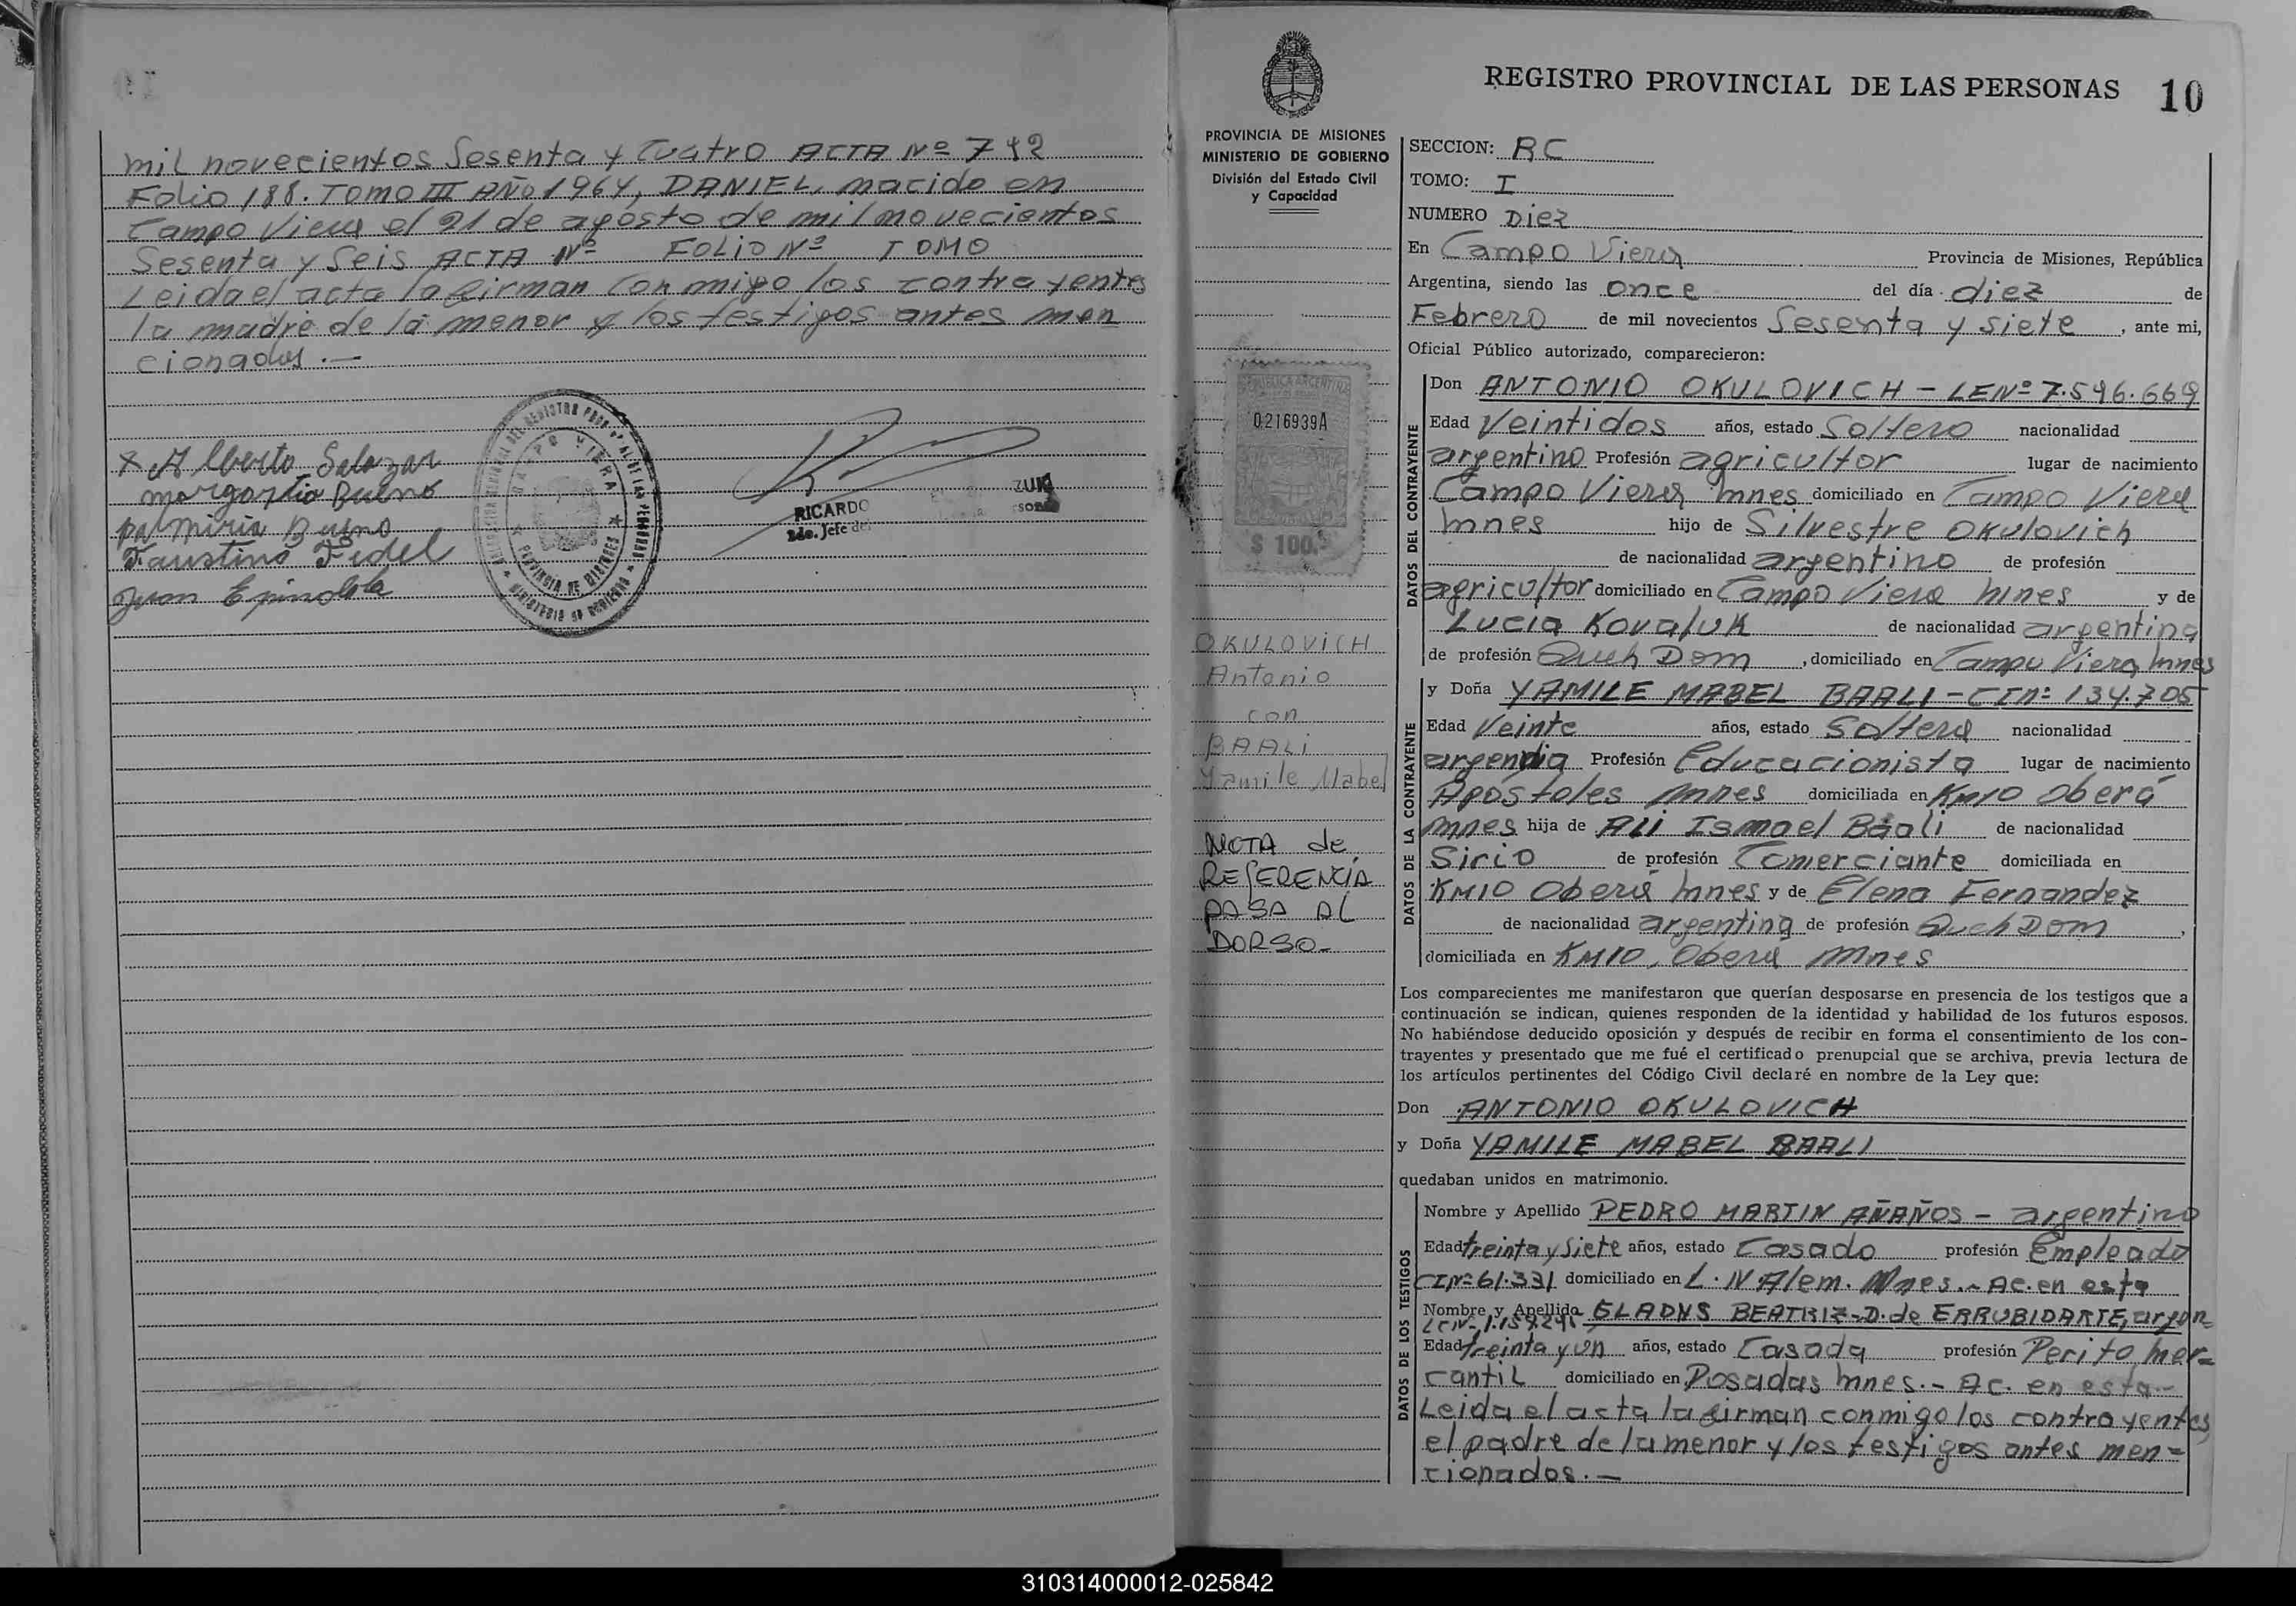 mil novecientos Sesenta y Cuatro ACTA Nº 742
Folio 188. TOMO III AÑO 1964, DANIEL, nacido en
Campo Viera el 21 de agosto de mil novecientos
Sesenta y Seis ACTA Nº FOLIO Nº TOMO
Leida el acta la firman conmigo los contrayentes
la madre de la menor y los testigos antes men
cionados.—
x Alberto Salazar
margarita Bueno
palmiria Bueno
Faustino Fidel
Juan Espindola
CAMPO VIERA
PROVINCIA DE MISIONES
RICARDO ZUK
2do. Jefe de
REGISTRO PROVINCIAL DE LAS PERSONAS 10
PROVINCIA DE MISIONES
MINISTERIO DE GOBIERNO
División del Estado Civil
y Capacidad
REPUBLICA ARGENTINA
0216939A
$ 100.-
OKULOVICH
Antonio
con
BAALI
Yamile Mabel
NOTA de
REFERENCIA
PASA AL
DORSO-
SECCION: RC
TOMO: I
NUMERO Diez
En Campo Viera Provincia de Misiones, República
Argentina, siendo las once del día diez de
Febrero de mil novecientos Sesenta y siete, ante mi,
Oficial Público autorizado, comparecieron:
DATOS DEL CONTRAYENTE
Don ANTONIO OKULOVICH - LE Nº 7.596.669
Edad Veintidos años, estado Soltero nacionalidad
argentino Profesión agricultor lugar de nacimiento
Campo Viera Mnes domiciliado en Campo Viera
Mnes hijo de Silvestre Okulovich
de nacionalidad argentino de profesión
agricultor domiciliado en Campo Viera Mnes y de
Lucia Kovaluk de nacionalidad argentina
de profesión Queh Dom, domiciliado en Campo Viera Mnes
DATOS DE LA CONTRAYENTE
y Doña YAMILE MABEL BAALI - CI Nº 134.705
Edad Veinte años, estado Soltera nacionalidad
argentina Profesión Educacionista lugar de nacimiento
Apóstoles Mnes domiciliada en KM10 Oberá
Mnes hija de Ali Ismael Baali de nacionalidad
Sirio de profesión Comerciante domiciliada en
KM10 Oberá Mnes y de Elena Fernandez
de nacionalidad argentina de profesión Queh Dom,
domiciliada en KM10, Obera Mnes
Los comparecientes me manifestaron que querían desposarse en presencia de los testigos que a
continuación se indican, quienes responden de la identidad y habilidad de los futuros esposos.
No habiéndose deducido oposición y después de recibir en forma el consentimiento de los con-
trayentes y presentado que me fué el certificado prenupcial que se archiva, previa lectura de
los artículos pertinentes del Código Civil declaré en nombre de la Ley que:
Don ANTONIO OKULOVICH
y Doña YAMILE MABEL BAALI
quedaban unidos en matrimonio.
DATOS DE LOS TESTIGOS
Nombre y Apellido PEDRO MARTIN AÑAÑOS - argentino
Edad treinta y siete años, estado Casado profesión Empleado
CI Nº 61.331 domiciliado en L.N. Alem. Mnes.- Ac. en esta
Nombre y Apellido GLADYS BEATRIZ-D. de ERRUBIDARTE, argen=
Edad treinta y un años, estado Casada profesión Perito mer=
cantil domiciliado en Posadas Mnes.- Ac. en esta-
Leida el acta la firman conmigo los contrayentes
el padre de la menor y los testigos antes men=
cionados.—
310314000012-025842